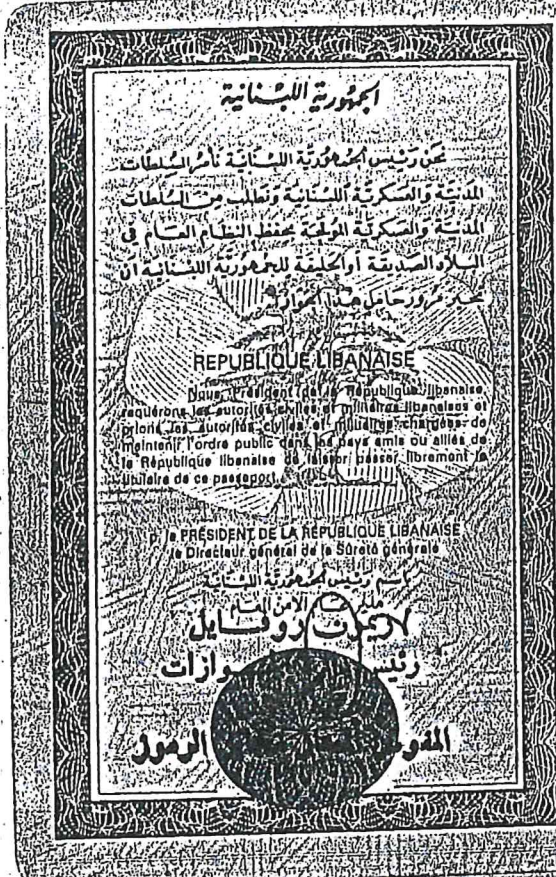 الجمهورية اللبنانية
نحن رئيس الجمهورية اللبنانية نأمر السلطات
المدنية والعسكرية اللبنانية ونطلب من السلطات
المدنية والعسكرية المولجة بحفظ النظام العام في
البلاد الصديقة أو الحليفة للجمهورية اللبنانية ان
مرور حامل هذا الجواز
REPUBLIQUE LIBANAISE
Nous, Président de la République libanaise,
requérons les autorités civiles et militaires libanaises et
prions les autorités civiles et militaires chargées de
maintenir l'ordre public dans les pays amis ou alliés de
la République libanaise de laisser passer librement le
titulaire de ce passeport.
p. le PRÉSIDENT DE LA RÉPUBLIQUE LIBANAISE
le Directeur général de la Sûreté générale
باسم رئيس الجمهورية اللبنانية
مدير عام الامن العام
روفايل